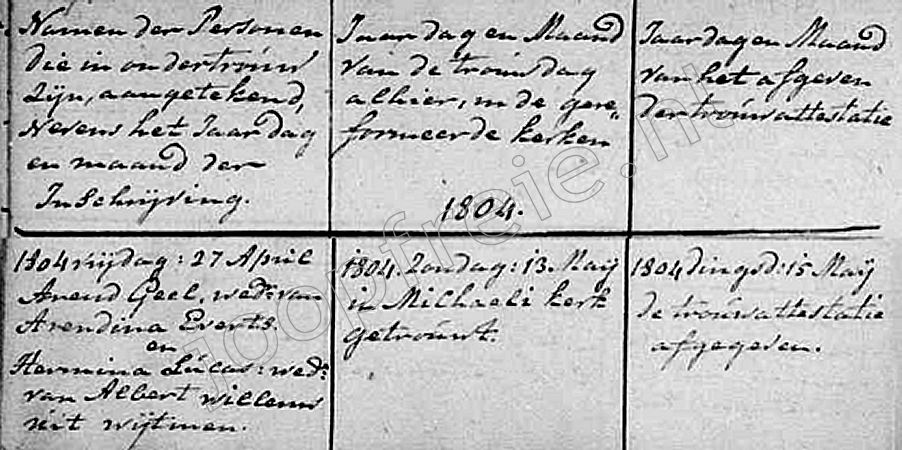 Namen der Personen
die in ondertrouw
Zijn, aangetekend,
Nevens het Jaar dag
en maand der
Inschrijving.
Jaar dag en Maand
van de trouwdag
alhier, in de gere=
formeerde kerken
1804.
Jaar dag en Maand
van het afgeven
der trouwattestatie
1804 vrijdag: 27 April
Arend Geel, wedr: van
Arendina Everts.
en
Hermina Lucas: wed:
van Albert willems
uit wijtmen.
1804. Zondag: 13. Maij
in Michaeli kerk
getrouwt.
1804 dingsd: 15 Maij
de trouwattestatie
afgegeven.
joopfreie.nl